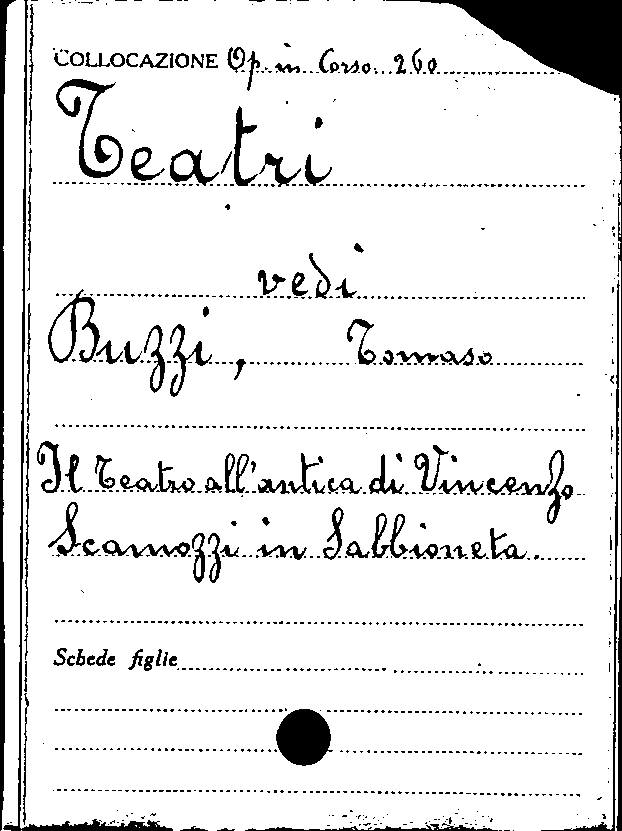 COLLOCAZIONE Op. in Corso. 260
Teatri
vedi
Buzzi, Tomaso
Il Teatro all'antica di Vincenzo
Scamozzi in Sabbioneta.
Schede figlie